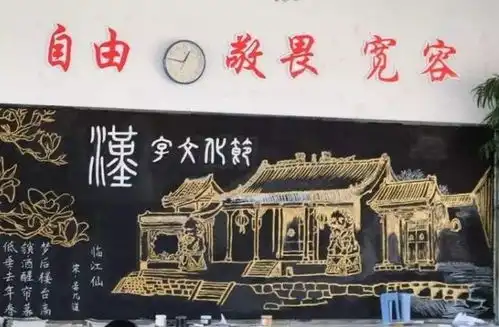 自由 敬畏 宽容
漢字文化節
临江仙
宋·晏几道
梦后楼台高
锁酒醒帘幕
低垂去年春